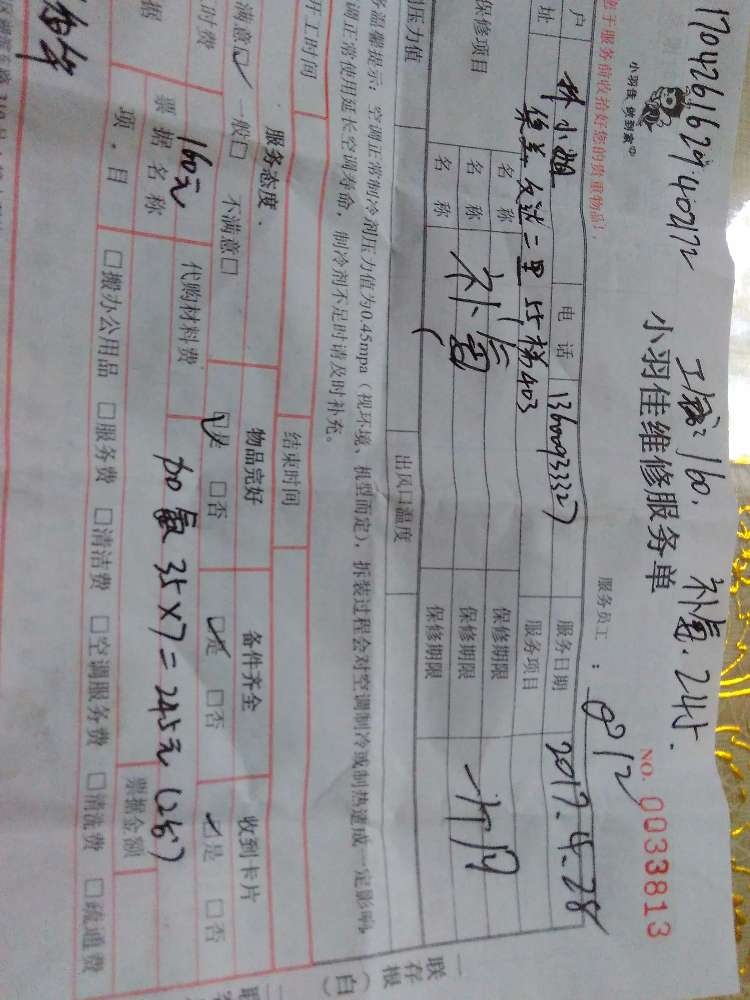 1704261629402172 工钱：160. 补氟.245.
小羽佳 做到家
小羽佳维修服务单
NO. 0033813
服务员工：0812
于服务前收拾好您的贵重物品！
户 林小姐 电话 13600933327 服务日期 2017.4.28
址 二里55梯403 服务项目
保修项目 名称 保修期限
名称 补氟 保修期限 一个月
名称 保修期限
压力值 出风口温度
务温馨提示：空调正常制冷剂压力值为0.45mpa（视环境、机型而定），拆装过程会对空调制冷或制热造成一定影响，
调正常使用延长空调寿命，制冷剂不足时请及时补充。
开工时间 结束时间
服务态度 物品完好 备件齐全 收到卡片
满意☑ 一般□ 不满意□ ☑是 □否 ☑是 □否 ☑是 □否
时费 160元 代购材料费 加氟35×7=245元
据 票据名称 票据金额
项目 □搬办公用品 □服务费 □清洁费 □空调服务费 □清洗费 □疏通费
一联存根（白）